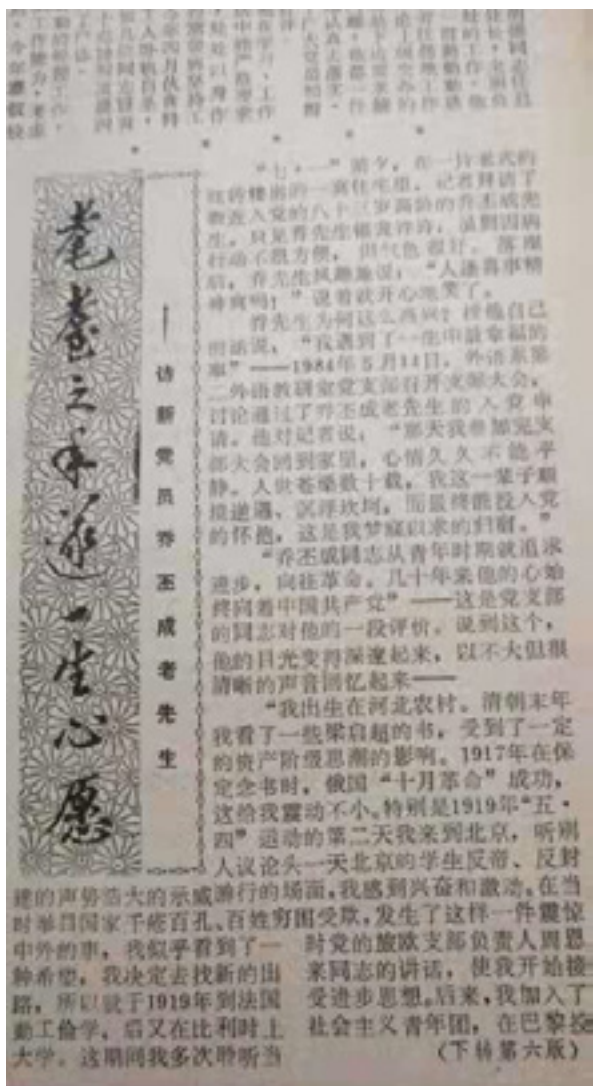 耄耋之年遂一生心愿
——访新党员乔丕成老先生
“七·一”前夕，在一片老式的
红砖楼房的一套住宅里，记者拜访了
新近入党的八十三岁高龄的乔丕成先
生。只见乔先生银发，虽则因病
行动不很方便，但气色很好。落座
后，乔先生风趣地说：“人逢喜事精
神爽吗！”说着就开心地笑了。
乔先生为何这么高兴？按他自己
的话说，“我遇到了一生中最幸福的
事”——1984年5月14日，外语系第
二外语教研室党支部召开支部大会，
讨论通过了乔丕成老先生的入党申
请。他对记者说：“那天我参加完支
部大会回到家里，心情久久不能平
静。人世苍桑数十载，我这一辈子顺
境逆遇、沉浮坎坷，而最终能投入党
的怀抱，这是我梦寐以求的归宿。”
“乔丕成同志从青年时期就追求
进步，向往革命。几十年来他的心始
终向着中国共产党”——这是党支部
的同志对他的一段评价。说到这个，
他的目光变得深邃起来，以不大但很
清晰的声音回忆起来——
“我出生在河北农村。清朝末年
我看了一些梁启超的书，受到了一定
的资产阶级思潮的影响。1917年在保
定念书时，俄国“十月革命”成功，
这给我震动不小。特别是1919年“五·
四”运动的第二天我来到北京，听别
人议论头一天北京的学生反帝、反封
建的声势浩大的示威游行的场面，我感到兴奋和激动。在当
时举目国家千疮百孔、百姓穷困受欺，发生了这样一件震惊
中外的事，我似乎看到了一
种希望，我决定去找新的出
路，所以就于1919年到法国
勤工俭学，后又在比利时上
大学。这期间我多次聆听当
时党的旅欧支部负责人周恩
来同志的讲话，使我开始接
受进步思想。后来，我加入了
社会主义青年团，在巴黎
（下转第六版）